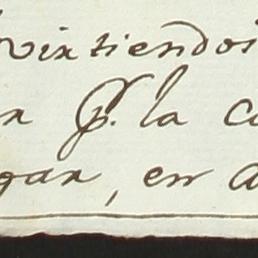 virtiendo
n p.r la c
gar, en a